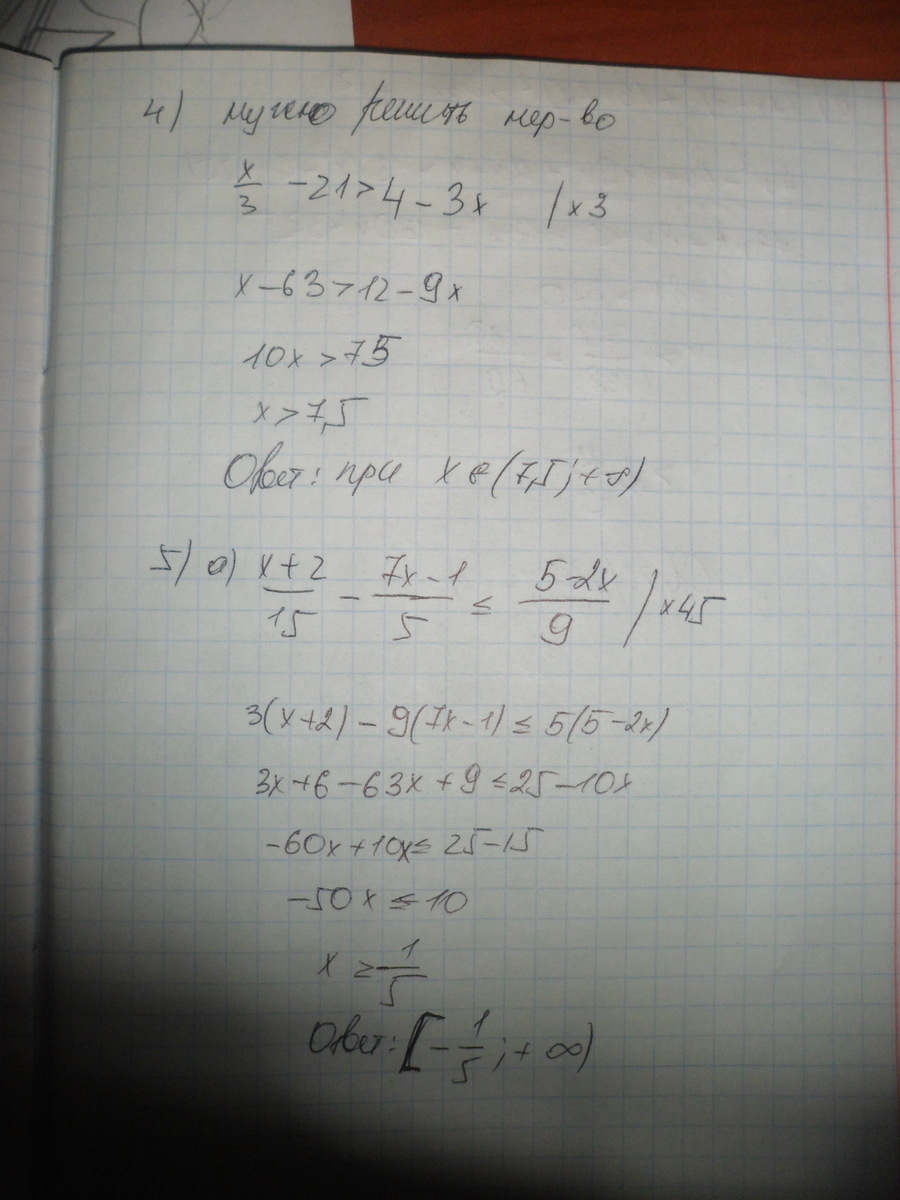 4) нужно решить нер-во
x/3 - 21 > 4 - 3x / x 3
x - 63 > 12 - 9x
10x > 75
x > 7,5
Ответ: при x ∈ (7,5; +∞)
5) а) (x+2)/15 - (7x-1)/5 ≤ (5-2x)/9 / x 45
3(x+2) - 9(7x-1) ≤ 5(5-2x)
3x+6-63x+9 ≤ 25-10x
-60x+10x ≤ 25-15
-50x ≤ 10
x ≥ -1/5
Ответ: [-1/5; +∞)